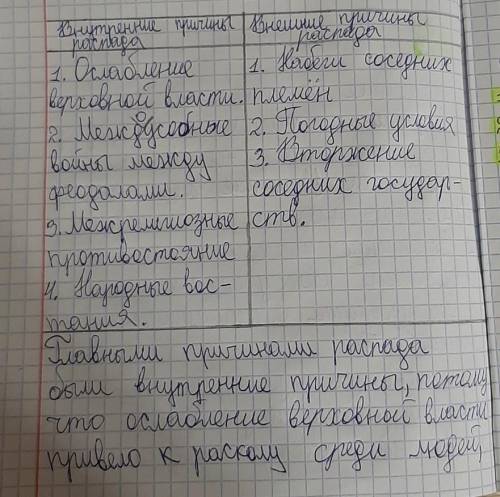 Внутренние причины распада
Внешние причины распада
1. Ослабление
верховной власти.
2. Междоусобные
войны между
феодалами.
3. Межрелигиозные
противостояние
4. Народные вос-
тания.
1. Набеги соседних
племён
2. Погодные условия
3. Вторжение
соседних государ-
ств.
Главными причинами распада
были внутренние причины, потому
что ослабление верховной власти
привело к расколу среди людей,